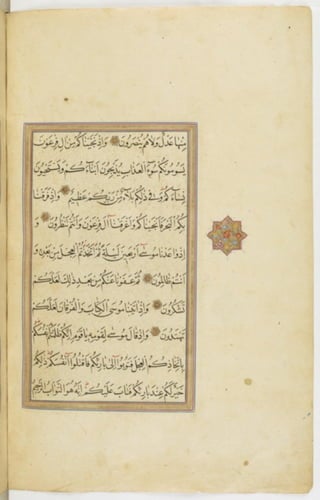 منها عدل ولا هم ينصرون واذ نجيناكم من ال فرعون
يسومونكم سوء العذاب يذبحون ابناءكم ويستحيون
نساءكم وفي ذلكم بلاء من ربكم عظيم واذ فرقنا
بكم البحر فانجيناكم واغرقنا ال فرعون وانتم تنظرون و
اذ واعدنا موسى اربعين ليلة ثم اتخذتم العجل من بعده و
انتم ظالمون ثم عفونا عنكم من بعد ذلك لعلكم
تشكرون واذ اتينا موسى الكتاب والفرقان لعلكم
تهتدون واذ قال موسى لقومه يا قوم انكم ظلمتم انفسكم
باتخاذكم العجل فتوبوا الى بارئكم فاقتلوا انفسكم ذلكم
خير لكم عند بارئكم فتاب عليكم انه هو التواب الرحيم